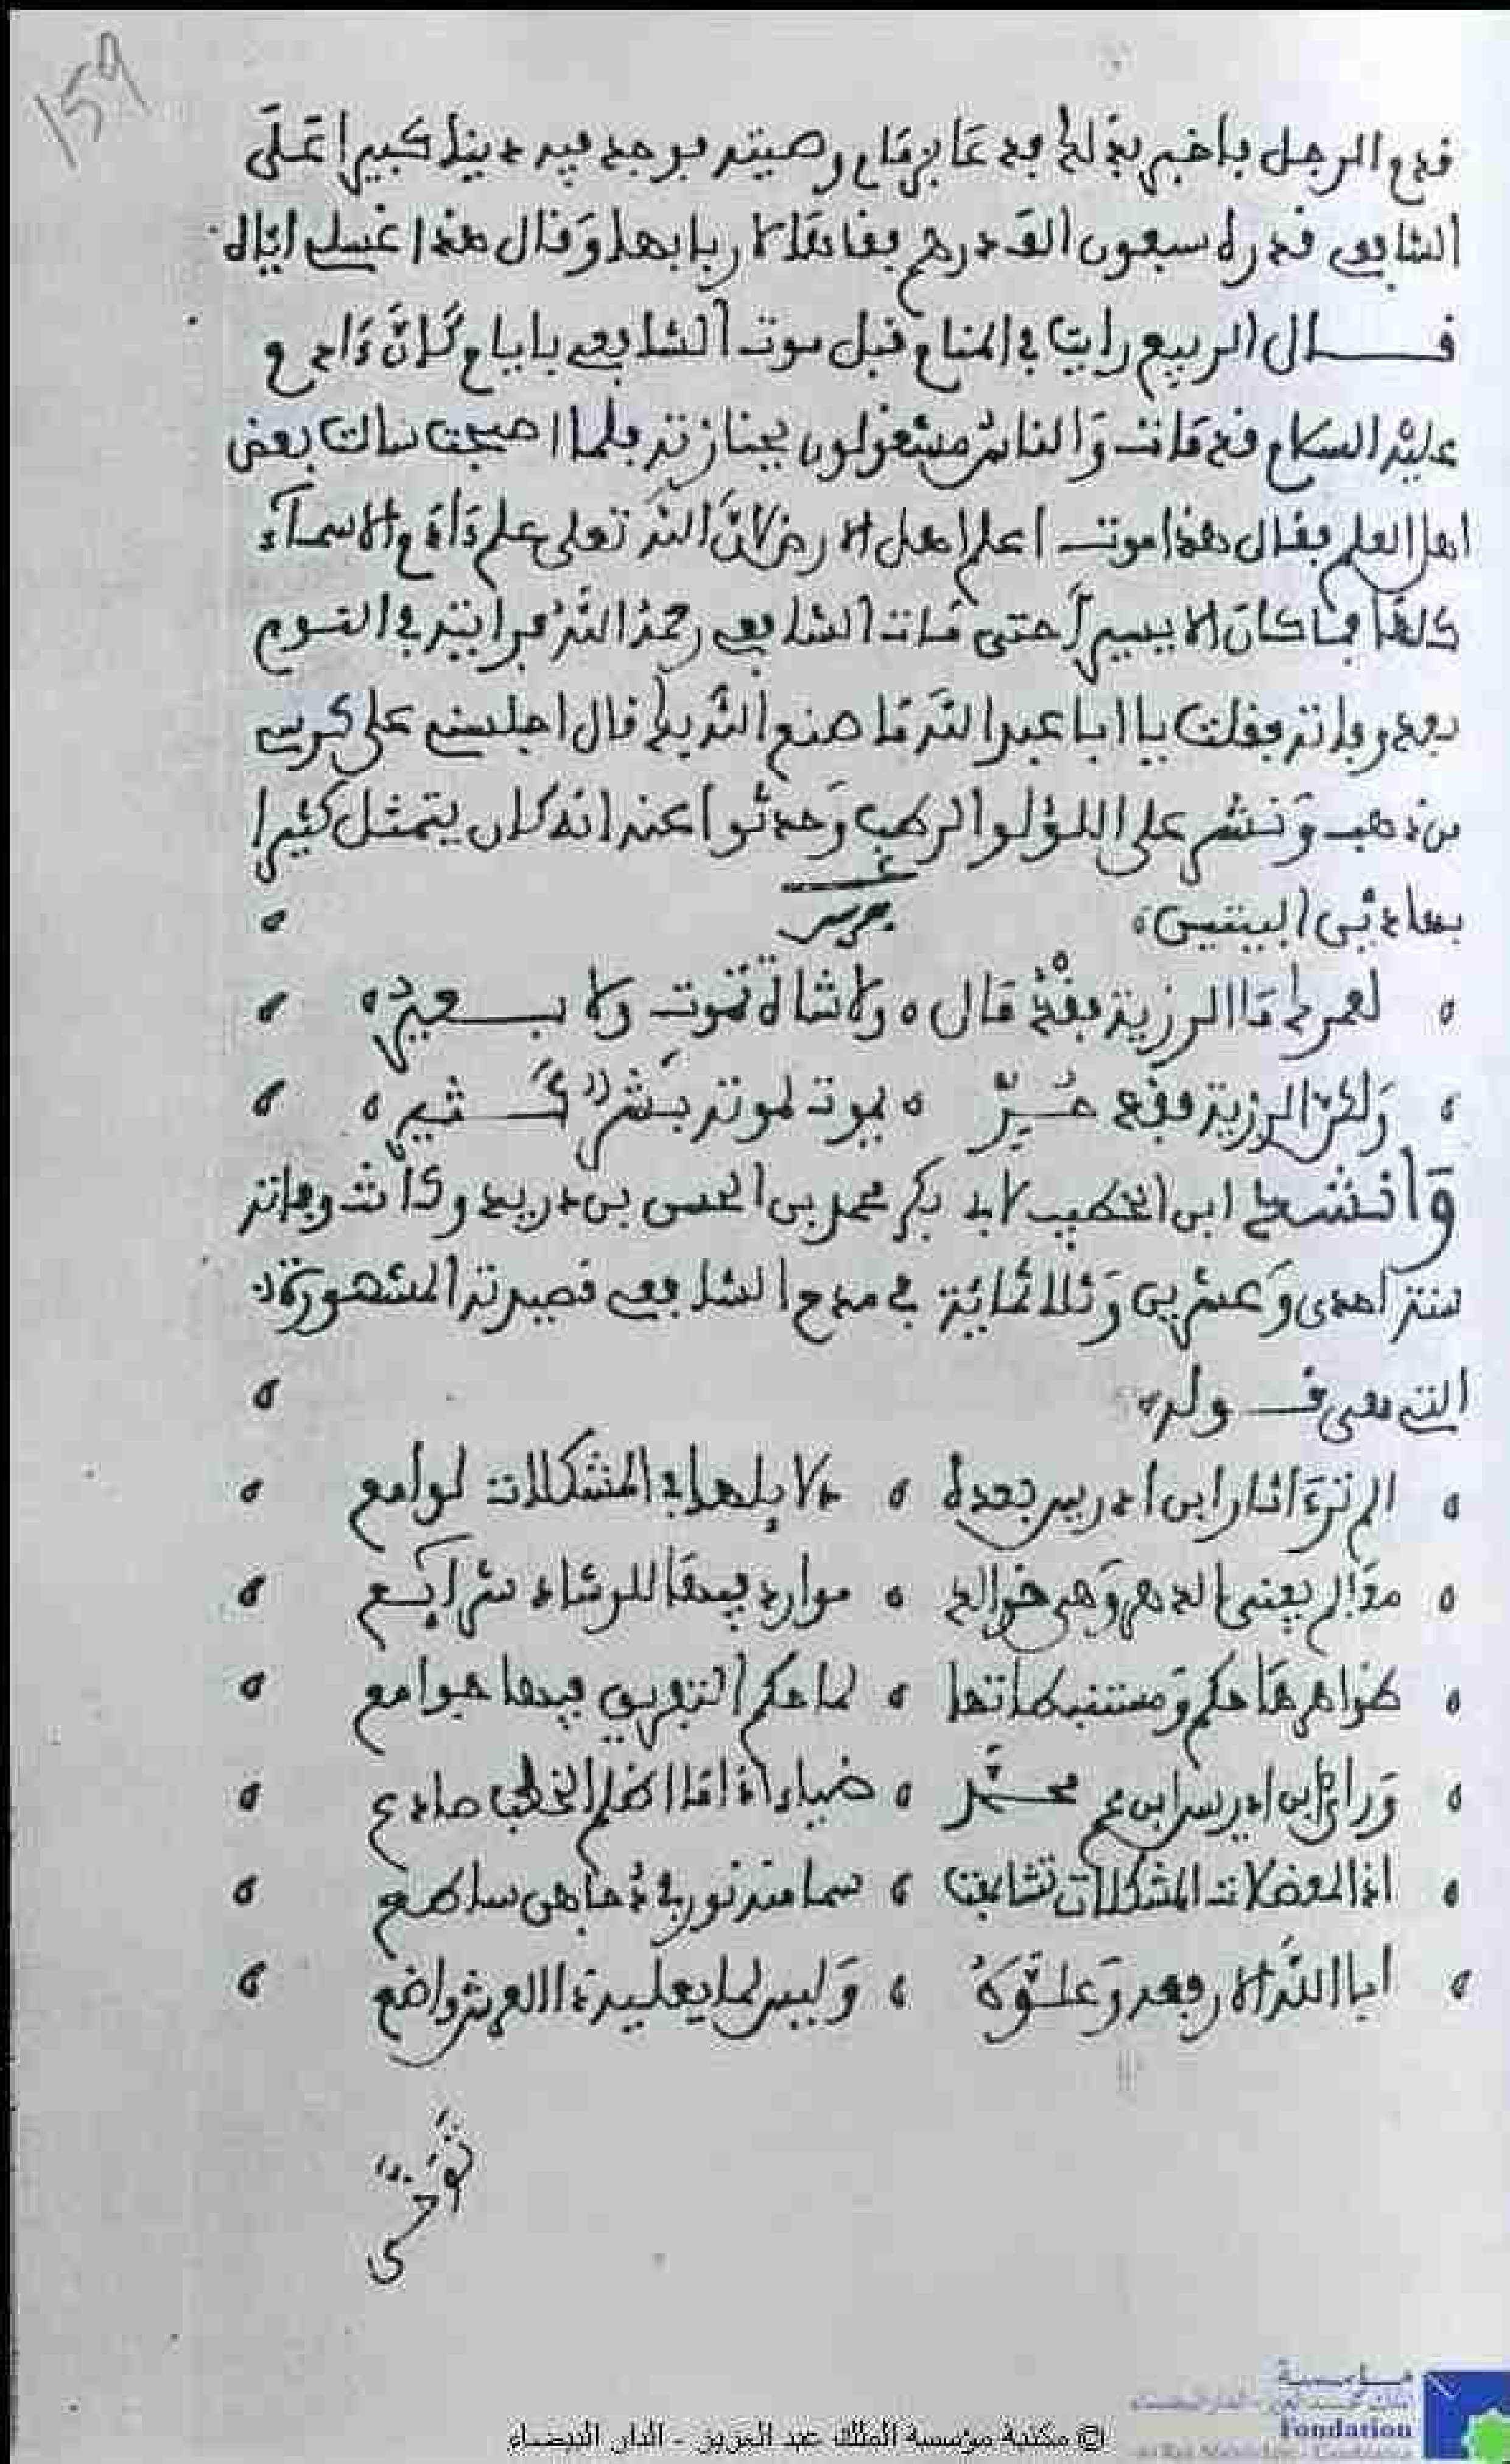 159
قدم الرجل فأخبر بذلك فدعا بزمام وصيته فوجد فيه دينا كبيرا على
الشافعي قدره سبعون ألف درهم فقاضها لاربابها وقال هذا غسلي اياه
قال الربيع رايت في المنام قبل موت الشافعي بايام كأن ءادم
عليه السلام قد مات والناس مشغولون بجنازته فلما اصبحت سالت بعض
اهل العلم فقال هذا موت اعلم اهل الارض لان الله تعلى علم ءادم الاسماء
كلها فما كان الا يسيرا حتى مات الشافعي رحمه الله فرايته في النوم
بعد وفاته فقلت يا ابا عبد الله ما صنع الله بك قال اجلسني على كرسي
من ذهب ونشر علي اللؤلؤ الرطب وحدثوا عنه انه كان يتمثل كثيرا
بهاذين البيتين
لعمرك ما الرزية فقد مال ولا شاة تموت ولا بعير
ولكن الرزية فقد حر يموت لموته بشر كثير
وانشد ابن الخطيب لابي بكر محمد بن الحسن بن دريد وكانت وفاته
سنة احدى وعشرين وثلاثمائة في مدح الشافعي قصيدته المشهورة
التي هي قوله
الم تر ءاثار ابن ادريس بعده دلايلها في المشكلات لوامع
معالم يفنى الدهر وهي خوالد موارد فيها للرشاد شرايع
ظواهرها حكم ومستنبطاتها لما حكم التفريق فيها جوامع
وراي ابن ادريس ابن عم محمد ضياء اذا ما اظلم الخطب صادع
اذا المعضلات المشكلات تشابهت سما منه نور في دجاهن ساطع
ابا الله الا رفعه وعلوه وليس لما يعليه ذا العرش واضع
توخى
© مكتبة مؤسسة الملك عبد العزيز - الدار البيضاء
مؤسسة
Fondation